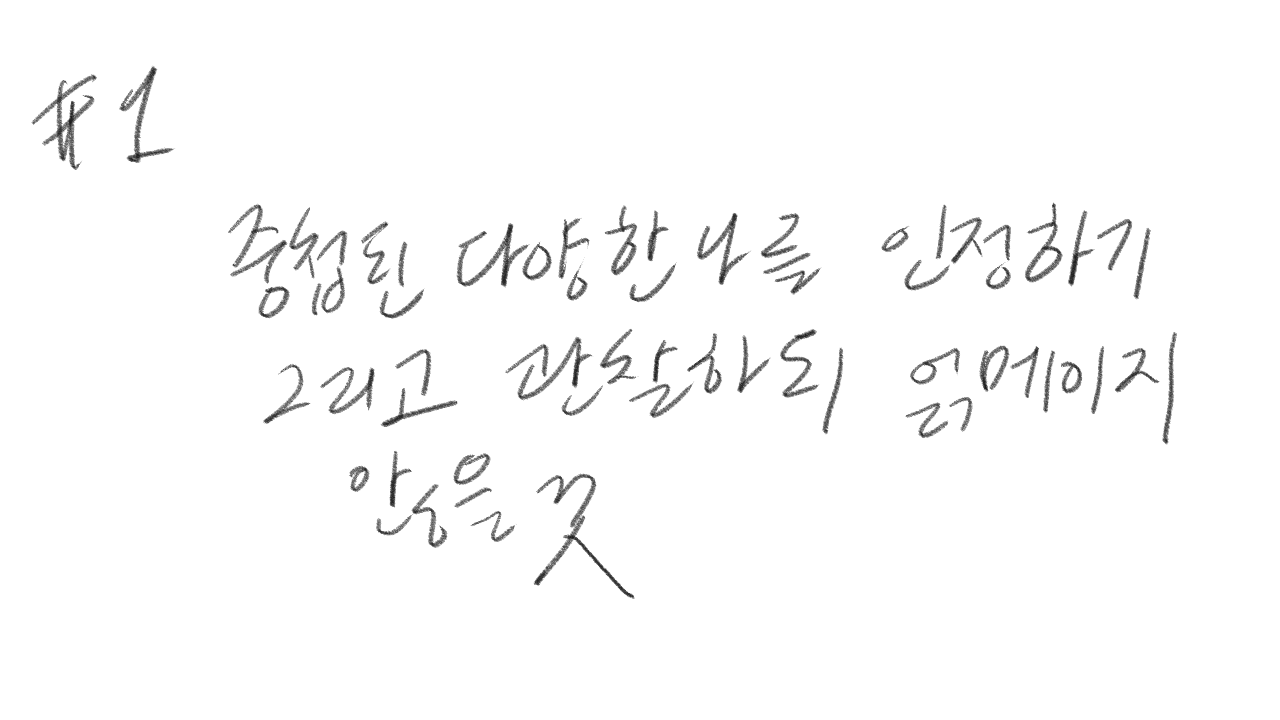 #1
중첩된 다양한 나를 인정하기
그리고 관찰하되 얽메이지
않을 것